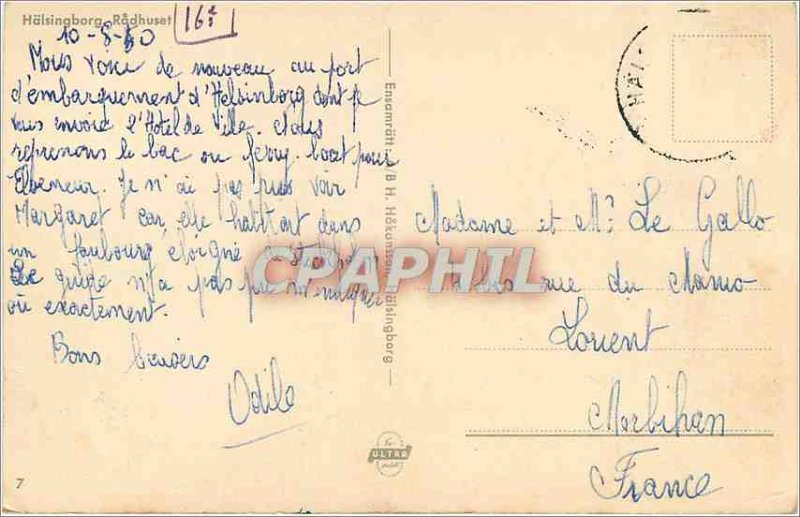 Hälsingborg. Rådhuset
16e
10-8-60
Nous voici de nouveau au port
d'embarquement d'Helsinborg dont je
vous envoie l'Hôtel de Ville. Nous
reprenons le bac ou ferry-boat pour
Elseneur. Je n'ai pas pu voir
Margaret car elle habitait dans
un faubourg éloigné
Le guide n'a pas pu m'indiquer
où exactement.
Bons baisers
Odile
Ensamrätt: B. H. Håkansson, Hälsingborg
CPAPHIL
HÄL
Madame et Mr Le Gallo
rue du Manio
Lorient
Morbihan
France
ULTRA
7